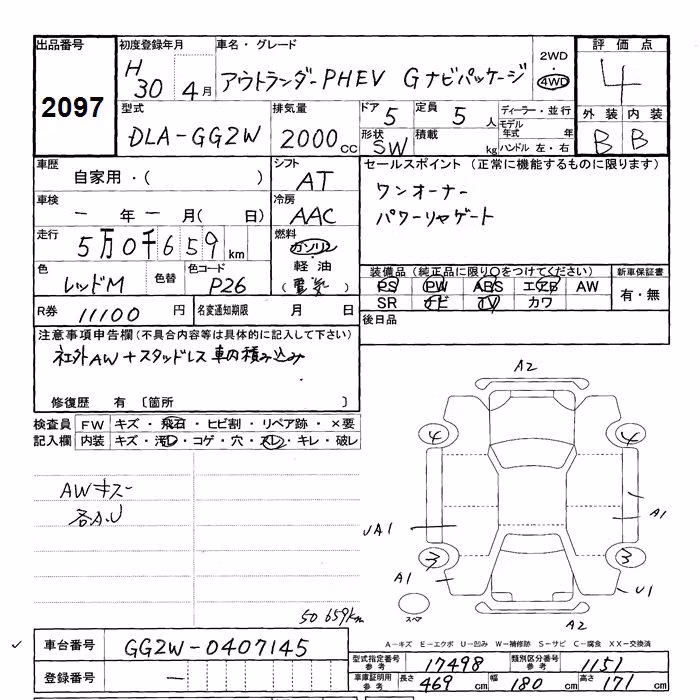 出品番号 初度登録年月 車名・グレード 2WD 評価点
2097 H 30 4月 アウトランダーPHEV Gナビパッケージ 4WD 4
型式 排気量 ドア 5 定員 5人 ディーラー・並行 外装 内装
DLA-GG2W 2000cc 形状 SW 積載 kg モデル年式 年 ハンドル 左・右 B B
車歴 シフト セールスポイント (正常に機能するものに限ります)
自家用・( ) AT ワンオーナー
車検 冷房 パワーリヤゲート
ー年ー月( 日) AAC
走行 燃料
5万0千659km ガソリン
色 色替 色コード 軽油 装備品(純正品に限り○をつけてください) 新車保証書
レッドM P26 (電気) PS PW ABS エアB AW 有・無
R券 11100円 名変通知期限 月 日 SR ナビ TV カワ
注意事項申告欄(不具合内容等は具体的に記入して下さい) 後日品
社外AW+スタッドレス車内積み込み
修復歴 有 〔箇所 〕
検査員 FW キズ・飛石・ヒビ割・リペア跡・×要
記入欄 内装 キズ・汚レ・コゲ・穴・スレ・キレ・破レ
A2
4 4
AWキズー
各A.U
UA1 A1
3 3
A1 U1
スペア
A2
50.659km
A-キズ E-エクボ U-凹み W-補修跡 S-サビ C-腐食 XX-交換済
車台番号 GG2W-0407145
型式指定番号 参考 17498 類別区分番号 参考 1151
登録番号 ー
車庫証明用 参考 長さ 469cm 幅 180cm 高さ 171cm